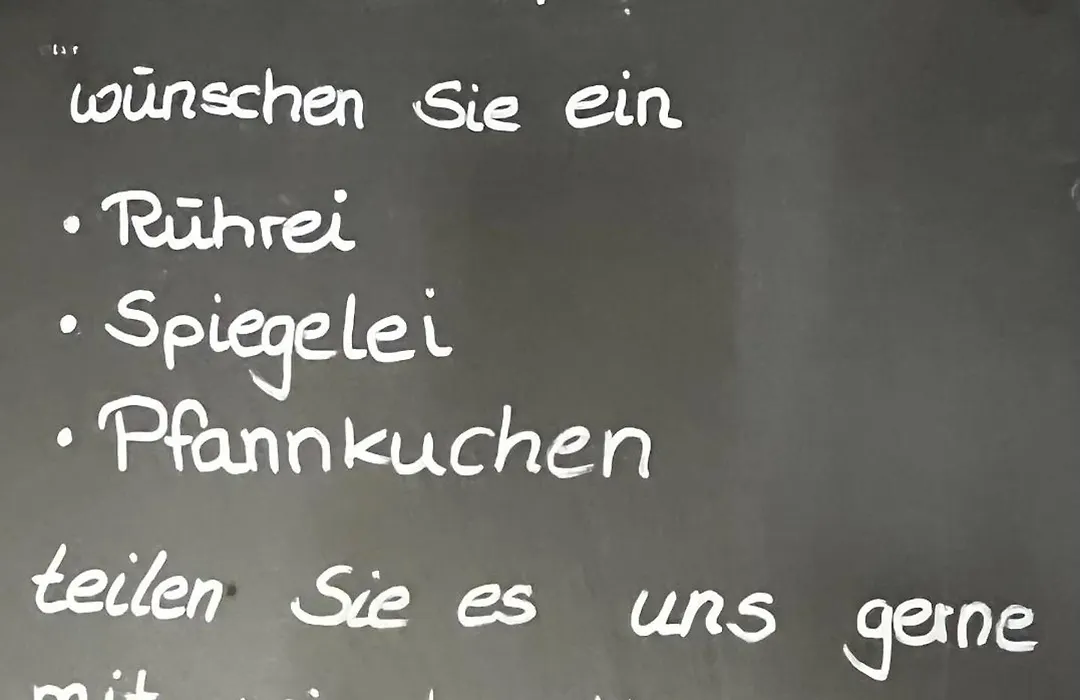 wünschen Sie ein
• Rührei
• Spiegelei
• Pfannkuchen
teilen Sie es uns gerne
mit